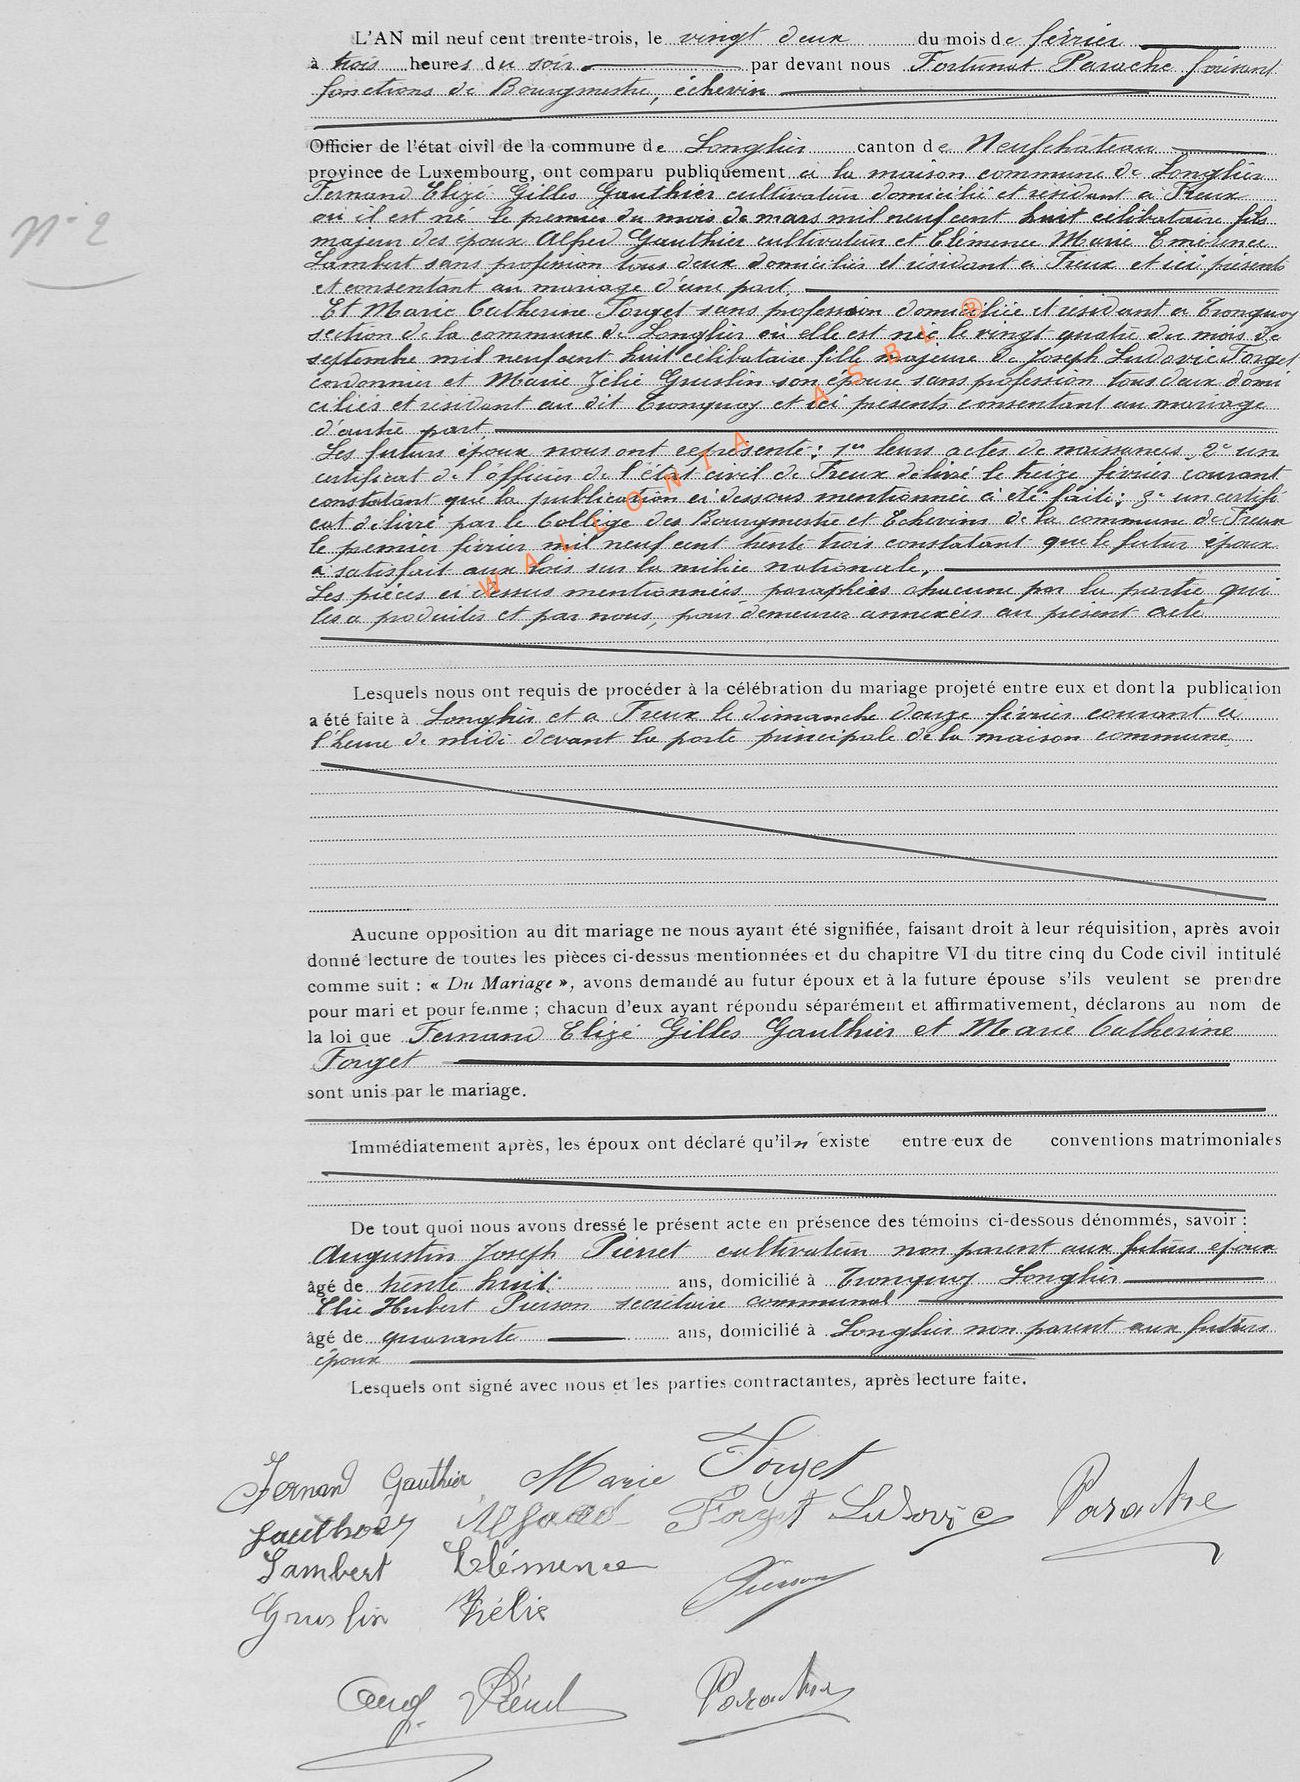 N° 2
L'AN mil neuf cent trente-trois, le vingt deux du mois de février
à trois heures du soir par devant nous Fortunat Parache faisant
fonctions de Bourgmestre, échevin
Officier de l'état civil de la commune de Longlier canton de Neufchâteau
province de Luxembourg, ont comparu publiquement à la maison commune de Longlier
Fernand Elizé Gilles Gauthier cultivateur domicilié et résidant à Freux
où il est né le premier du mois de mars mil neuf cent huit célibataire fils
majeur des époux Alfred Gauthier cultivateur et Clémence Marie Emérence
Lambert sans profession tous deux domiciliés et résidant à Freux et ici présents
et consentant au mariage d'une part.
Et Marie Catherine Forget sans profession domiciliée et résidant à Tronquoy
section de la commune de Longlier où elle est née le vingt quatre du mois de
septembre mil neuf cent huit célibataire fille majeure de Joseph Ludovic Forget
cordonnier et Marie Zélie Gruslin son épouse sans profession tous deux domi
ciliés et résidant au dit Tronquoy et ici présents consentant au mariage
d'autre part
Les futurs époux nous ont représenté: 1er leurs actes de naissances, 2e un
certificat de l'officier de l'état civil de Freux délivré le treize février courant
constatant que la publication ci dessous mentionnée a été faite; 3e un certifi
cat délivré par le Collège des Bourgmestre et Echevins de la commune de Freux
le premier février mil neuf cent trente trois constatant que le futur époux
a satisfait aux lois sur la milice nationale,
Les pièces ci dessus mentionnées paraphées chacune par la partie qui
les a produites et par nous, pour demeurer annexées au présent acte
WALLONIA ASBL ®
Lesquels nous ont requis de procéder à la célébration du mariage projeté entre eux et dont la publication
a été faite à Longlier et à Freux le dimanche douze février courant à
l'heure de midi devant la porte principale de la maison commune
Aucune opposition au dit mariage ne nous ayant été signifiée, faisant droit à leur réquisition, après avoir
donné lecture de toutes les pièces ci-dessus mentionnées et du chapitre VI du titre cinq du Code civil intitulé
comme suit : « Du Mariage », avons demandé au futur époux et à la future épouse s'ils veulent se prendre
pour mari et pour femme ; chacun d'eux ayant répondu séparément et affirmativement, déclarons au nom de
la loi que Fernand Elizé Gilles Gauthier et Marie Catherine
Forget
sont unis par le mariage.
Immédiatement après, les époux ont déclaré qu'il n'existe entre eux de conventions matrimoniales
De tout quoi nous avons dressé le présent acte en présence des témoins ci-dessous dénommés, savoir :
Augustin Joseph Pierret cultivateur non parent aux futurs époux
âgé de trente huit ans, domicilié à Tronquoy Longlier
Elie Hubert Pierson secrétaire communal
âgé de quarante ans, domicilié à Longlier non parent aux futurs
époux
Lesquels ont signé avec nous et les parties contractantes, après lecture faite.
Fernand Gauthier Marie Forget
Gauthier Alfred Forget Ludovic Parache
Lambert Clémence
Gruslin Zélie Pierson
Aug Pierret Parache